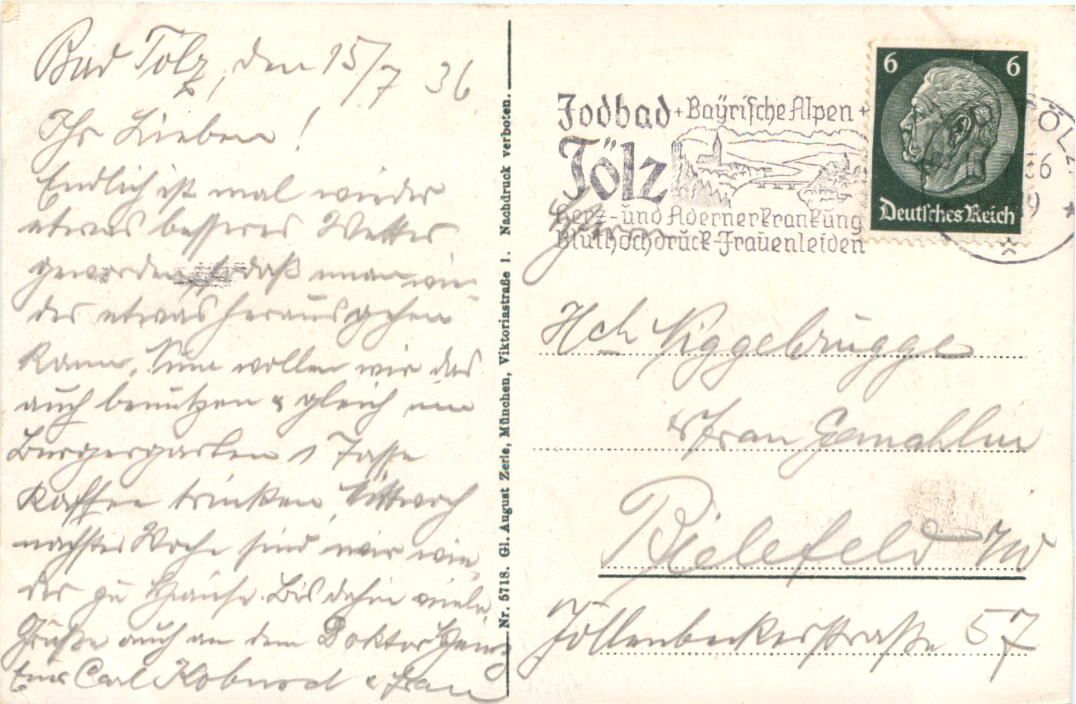 Bad Tölz, den 15/7 36
Ihr Lieben!
Endlich ist mal wieder
etwas besseres Wetter
geworden, sodaß man wie-
der etwas herausgehen
kann. Nun wollen wir das
auch benützen & gleich im
Bürgergarten 1 Tasse
Kaffee trinken. Mittwoch
nächster Woche sind wir wie-
der zu Hause. Bis dahin viele
Grüße auch an den Doktor
Carl & Frau
Nr. 5718. Gl. August Zerle, München, Viktoriastraße 1. Nachdruck verboten.
Jodbad + Bayrische Alpen +
Tölz
Herz- und Adernerkrankung
Bluthochdruck-Frauenleiden
6 6
Deutsches Reich
ÖLZ
36
9
Hch Niggebrügge
& Frau Gemahlin
Bielefeld i/W
Jöllenbeckerstraße 57